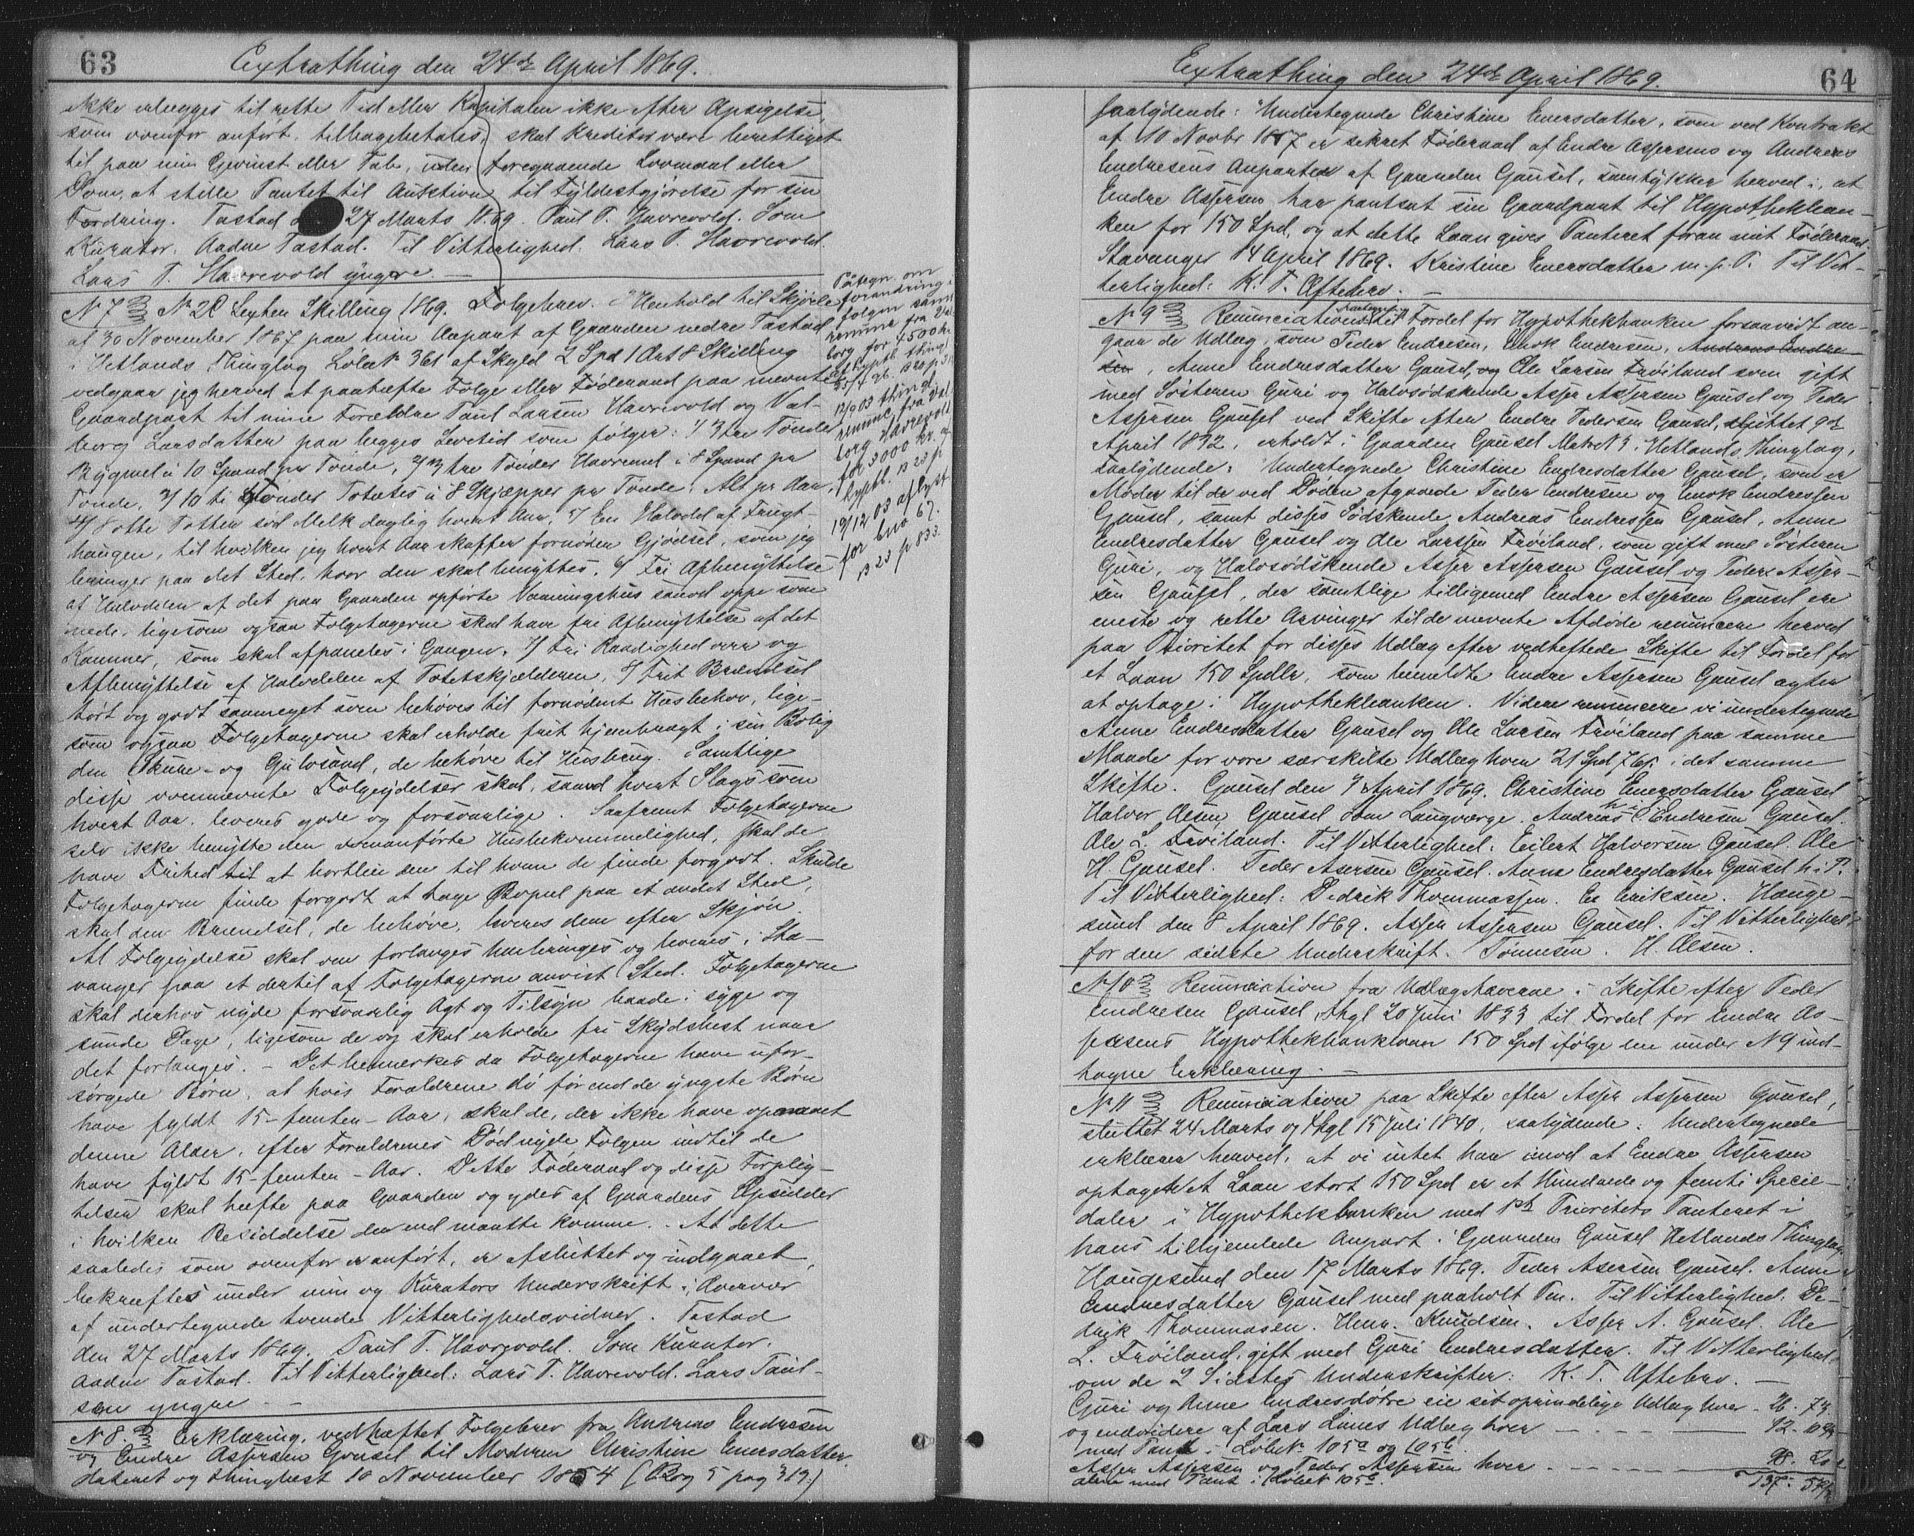 63
Extrathing den 24de April 1869.
ikke erlægges til rette Tid eller Kapitalen ikke efter Opsigelse,
som ovenfor anført, tilbagebetales, skal Kreditor være berettiget
til paa min Gevinst eller Tab, uden foregaaende Lovmaal eller
Dom, at stille Pantet til Auktion til Fyldestgjørelse for sin
Fordring. Tastad 27 Marts 1869. Paul T. Havrevold. Som
Kurator. Aadne Tastad. Til Vitterlighed. Lars T. Havrevold.
Lars T. Havrevold yngere. —
N 7 No 2 C Sexten Skilling 1869. Følgebrev. I Henhold til Skjøde
af 30 November 1867 paa min Anpart af Gaarden nedre Tastad
i Hetlands Thinglag Løbe N 361 af Skyld 2 Spd 1 Ort 8 Skilling
vedgaar jeg herved at paahefte Følge eller Føderaad paa nævnte
Gaardpart til mine Forældre Paul Larsen Havrevold og Val-
borg Larsdatter paa begges Levetid som følger: 1/ 3 tre Tønder
Bygmel à 10 Spand pr Tønde, 2/ 3 tre Tønder Havremel à 8 Spand pr
Tonde, 3/ 10 ti Tønder Potetes à 8 Skjæpper pr Tonde. Alt pr Aar.
4/ 8 otte Potter sød Melk daglig hvert Aar, 5/ En Halvdel af Frugt-
haugen, til hvilken jeg hvert Aar skaffer fornøden Gjødsel, som jeg
bringer paa det Sted, hvor den skal benyttes. 6/ Fri Afbenyttelse
af Halvdelen af det paa Gaarden opførte Vaaningshus saavel oppe som
nede, ligesom ogsaa Følgetagerne skal have fri Afbenyttelse af det
Kammer, som skal afpaneles i Gangen. 7/ Fri Raadighed over og
Afbenyttelse af Halvdelen af Potetskjælderen, 8/ Frit Brændsel
tørt og godt saameget som behøves til fornødent Husbehov, lige-
som ogsaa Følgetagerne skal erholde frit hjembragt i sin Bolig
den Skure- og Gulvsand, de behøve til Husbrug. Samtlige
disse ovennævnte Følgeydelser skal, saavel hvert Slags som
hvert Aar leveres gode og forsvarlige. Saafremt Følgetagerne
selv ikke benytte den ovenanførte Husbekvemmelighed, skal de
have Frihed til at bortleie den til hvem de finde forgodt. Skulde
Følgetagerne finde forgodt at tage Bopæl paa et andet Sted,
skal den Brændsel, de behøve, leveres dem efter Skjøn.
Al Følgeydelse skal om forlanges henbringes og leveres i Sta-
vanger paa et dertil af Følgetagerne anvist Sted. Følgetagerne
skal derhos nyde forsvarlig Agt og Tilsyn baade i syge og
sunde Dage, ligesom de og skal erholde fri Skydshest naar
det forlanges. — Det bemærkes da Følgetagerne have ufor-
sørgede Børn, at hvis Forældrene dø før end de yngste Børn
have fyldt 15-femten-Aar, skal de, der ikke have opnaaet
denne Alder, efter Forældrenes Død nyde Følgen indtil de
have fyldt 15-femten-Aar. Dette Føderaad og disse Forplig-
telser skal hæfte paa Gaarden og ydes af Gaardens Opsidder
i hvilken Besiddelse den end maatte komme. At dette
saaledes som ovenfor er anført, er afsluttet og indgaaet,
bekræftes under min og Kurators Underskrift i Overvær
af undertegnede tvende Vitterlighedsvidner. Tastad
den 27 Marts 1869. Paul T. Havrevold. Som Kurator.
Aadne Tastad. Til Vitterlighed: Lars T. Havrevold. Lars Paul-
sen yngre. —
N 8 Erklæring, vedhæftet Følgebrev fra Andreas Endresen
og Endre Aspersen Gousel til Moderen Christine Enersdatter
dateret og thinglæst 10 November 1854 (Bog 5 pag 319.)
Paategn. om
forandring i
følgen samt
renunc. fra Val-
borg for 4500 kr.
13/9 03 thingl.
renunc. fra Val-
borg Havrevold
for 3000 kr.
19/12 03 aflyst
for bno 67.
B 23 p 833.
64
Extrathing den 24de April 1869.
saalydende: Undertegnede Christine Enersdatter, som ved Kontrakt
af 10 Novbr 1867 er sikret Føderaad af Endre Aspersens og Andreas
Endresens Anparter af Gaarden Gausel, samtykker herved i, at
Endre Aspersen har pantsat sin Gaardpart til Hypothekban-
ken for 150 Spd, og at dette Laan gives Panteret foran mit Føderaad.
Stavanger 14 April 1869. Kristine Enersdatter m. p. P. Til Vit-
terlighed: K. T. Aftebro. —
N 9 Renunciation til Fordel for Hypothekbanken forsaavidt an-
gaar de Udlæg, som Peder Endresen, Enok Endresen, Andreas Endre-
sen, Anne Endresdatter Gausel, og Ole Larsen Frøiland som gift
med Søsteren Guri og Halvsødskende Asper Aspersen Gausel og Peder
Aspersen Gausel ved Skifte efter Endre Pedersen Gausel, sluttet 9de
April 1832, erholdt i Gaarden Gausel Matr N 9, Hetlands Thinglag,
saalydende: Undertegnede Christine Endresdatter Gausel, som er
Moder til de ved Døden afgaaede Peder Endresen og Enok Endresen
Gausel, samt disses Sødskende Andreas Endresen Gausel, Anne
Endresdatter Gausel og Ole Larssen Frøiland, som gift med Søsteren
Guri, og Halvsødskende Asper Aspersen Gausel og Peder Asper-
sen Gausel, der samtlige tilligemed Endre Aspersen Gausel ere
eneste og rette Arvinger til de nævnte Afdøde renuncere herved
paa Prioritet for disses Udlæg efter vedheftede Skifte til Fordel for
et Laan 150 Spdlr, som bemeldte Endre Aspersen Gausel agter
at optage i Hypothekbanken. Videre renuncere vi undertegnede
Anne Endresdatter Gausel og Ole Larsen Frøiland paa samme
Maade for vore særskilte Udlæg hver 21 Spd 76 ẞ. i det samme
Skifte. Gausel den 7 April 1869. Christine Enersdatter Gausel
Halvor Olsen Gausel som Laugværge. Andreas Endresen Gausel.
Ole L. Frøiland. Til Vitterlighed: Eilert Halvorsen Gausel. Ole
H. Gausel. Peder Asersen Gausel. Anne Endresdatter Gausel h. i. P.
Til Vitterlighed: Didrik Thommassen. Er Eriksen. Hauge-
sund den 8 April 1869. Asper Aspersen Gausel. Til Vitterlighed
for den sidste Underskrift. Tønnesen. H. Olsen.
N 10 Renunciation fra Udlægshaverne i Skifte efter Peder
Endresen Gausel, thgl 20 Juni 1833 til Fordel for Endre As-
persens Hypothekbanklaan 150 Spd ifølge en under N 9 ind-
tagne Erklæring. —
N 11 Renunciation paa Skifte efter Asper Aspersen Gausel,
sluttet 24 Marts og thgl 15 Juli 1840, saalydende: Undertegnede
erklærer herved, at vi intet har imod at Endre Aspersen
optager et Laan stort 150 Spd er et Hundrede og femti Specie-
daler i Hypothekbanken med 1ste Prioritets Panteret i
hans tilhjemlede Anpart i Gaarden Gausel Hetlands Thinglag.
Haugesund den 17 Marts 1869. Peder Asersen Gausel. Anne
Endresdatter Gausel med paaholt Pen. Til Vitterlighed. Di-
drik Thommasen. Henr. Knudsen. Asper A. Gausel. Ole
L. Frøiland, gift med Guri Endresdatter. Til Vitterlighed
om de 2 Sidstes Underskrifter: K. T. Aftebro. —
Guri og Anne Endresdøtre eie sit oprindelige Udlæg hver - 26. 74
og endvidere af Lars Udlæg hver — — 12.
med Pant i Løbe N 105a og 105b.
Asper Aspersen og Peder Aspersen hver — — 98.
alene med Pant i Løbe N 105a. 137.